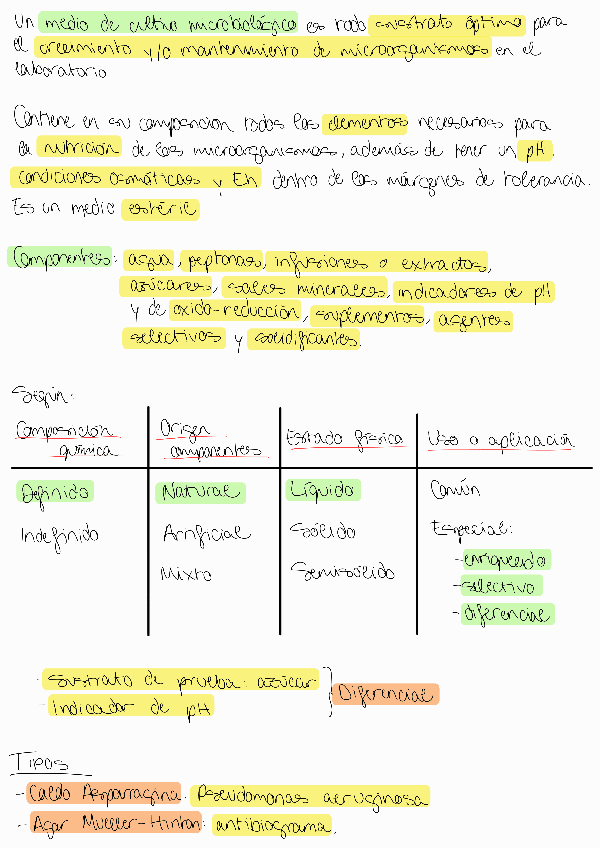 Un medio de cultivo microbiológico es todo sustrato óptimo para
el crecimiento y/o mantenimiento de microorganismos en el
laboratorio
Contiene en su composición todos los elementos necesarios para
la nutrición de los microorganismos, además de tener un pH,
condiciones osmóticas y Eh dentro de los márgenes de tolerancia.
Es un medio estéril
Componentes: agua, peptonas, infusiones o extractos,
azúcares, sales minerales, indicadores de pH
y de oxido-reducción, suplementos, agentes
selectivos y solidificantes.
Según:
Composición química | Origen componentes | Estado físico | Uso o aplicación
Definido | Natural | Líquido | Común
Indefinido | Artificial | Sólido | Especial:
Mixto | Semisólido | - enriquecido
- selectivo
- diferencial
- Sustrato de prueba: azúcar
- Indicador de pH
Diferencial
Tipos
- Caldo Asparragina: Pseudomonas aeruginosa
- Agar Mueller-Hinton: antibiograma.